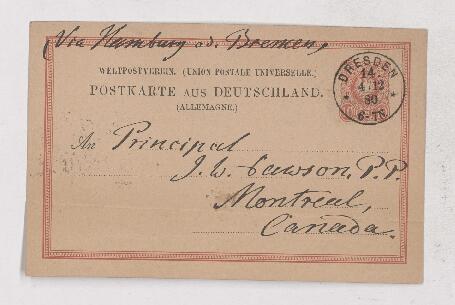 (Via Hamburg od. Bremen,
WELTPOSTVEREIN. (UNION POSTALE UNIVERSELLE.)
POSTKARTE AUS DEUTSCHLAND.
(ALLEMAGNE.)
DRESDEN
14
4 12
80
6-7N
An Principal
J. W. Dawson, P. P.
Montreal,
Canada.